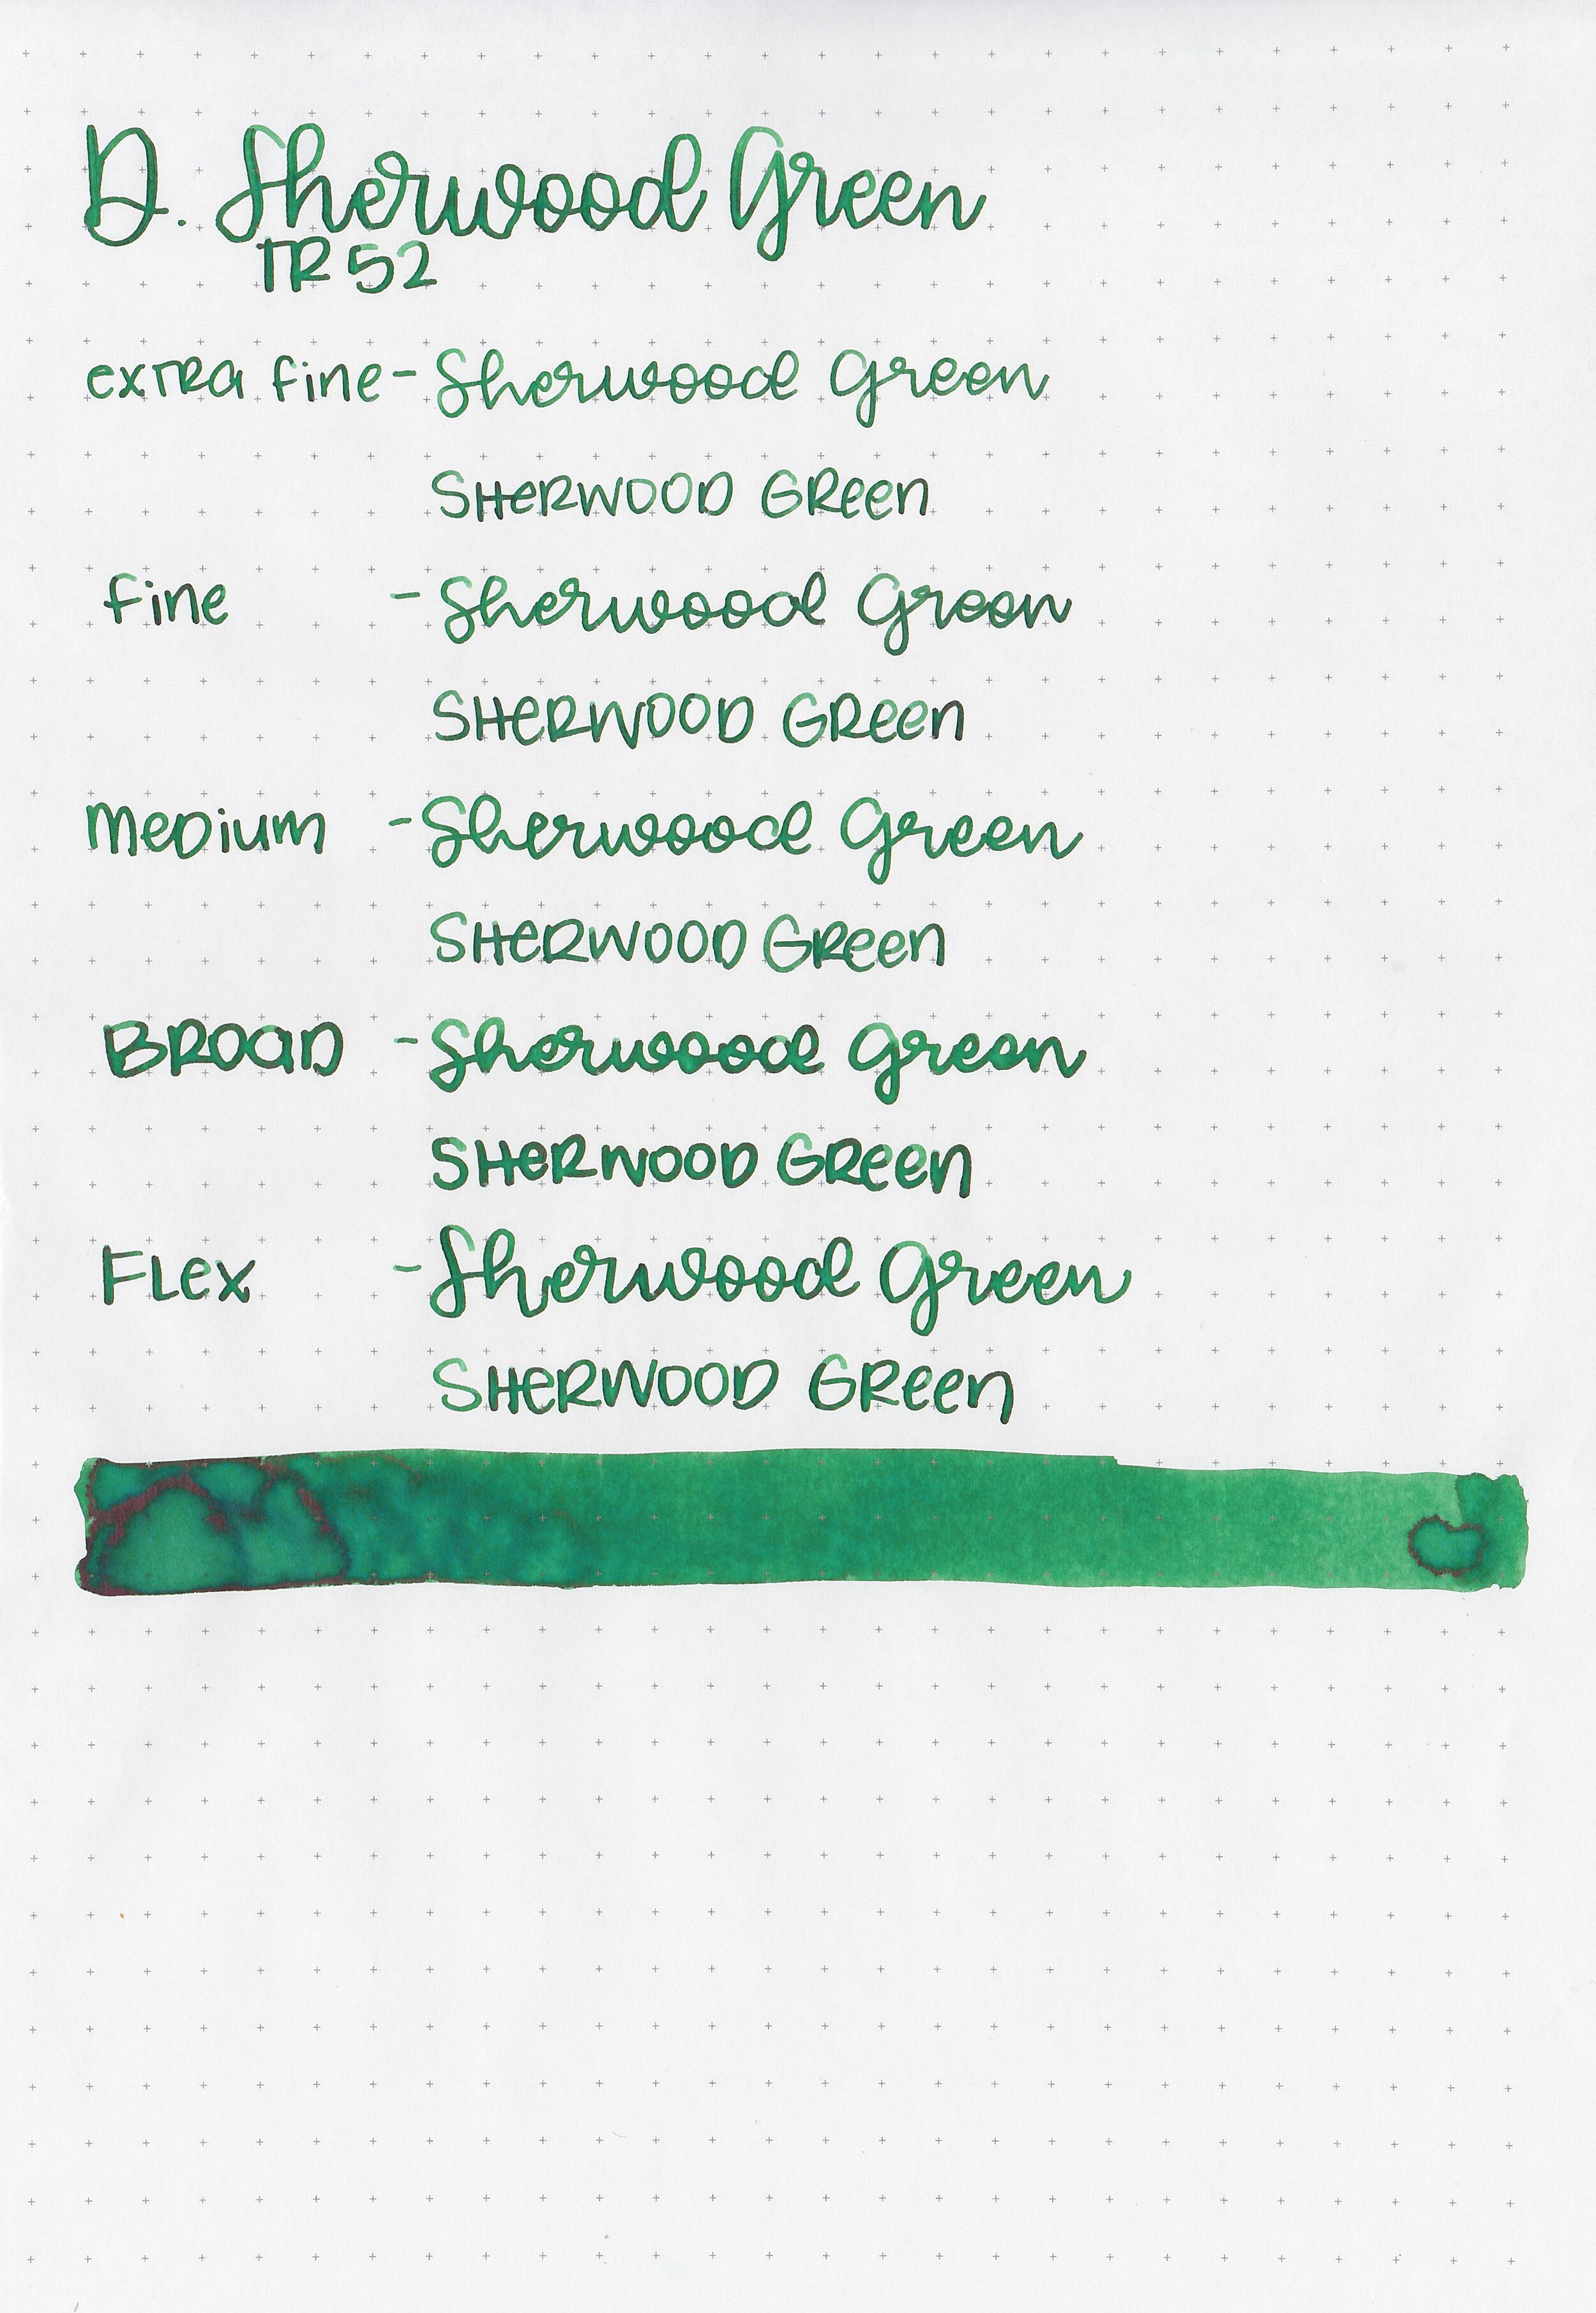 D. Sherwood Green
TR 52
extra fine - Sherwood Green
SHeRWOOD GReen
fine - Sherwood Green
SHeRWOOD GReen
MeDium - Sherwood Green
SHeRWOOD GReen
BROaD - Sherwood Green
SHeRWOOD GReen
FLex - Sherwood Green
SHeRWOOD GReen